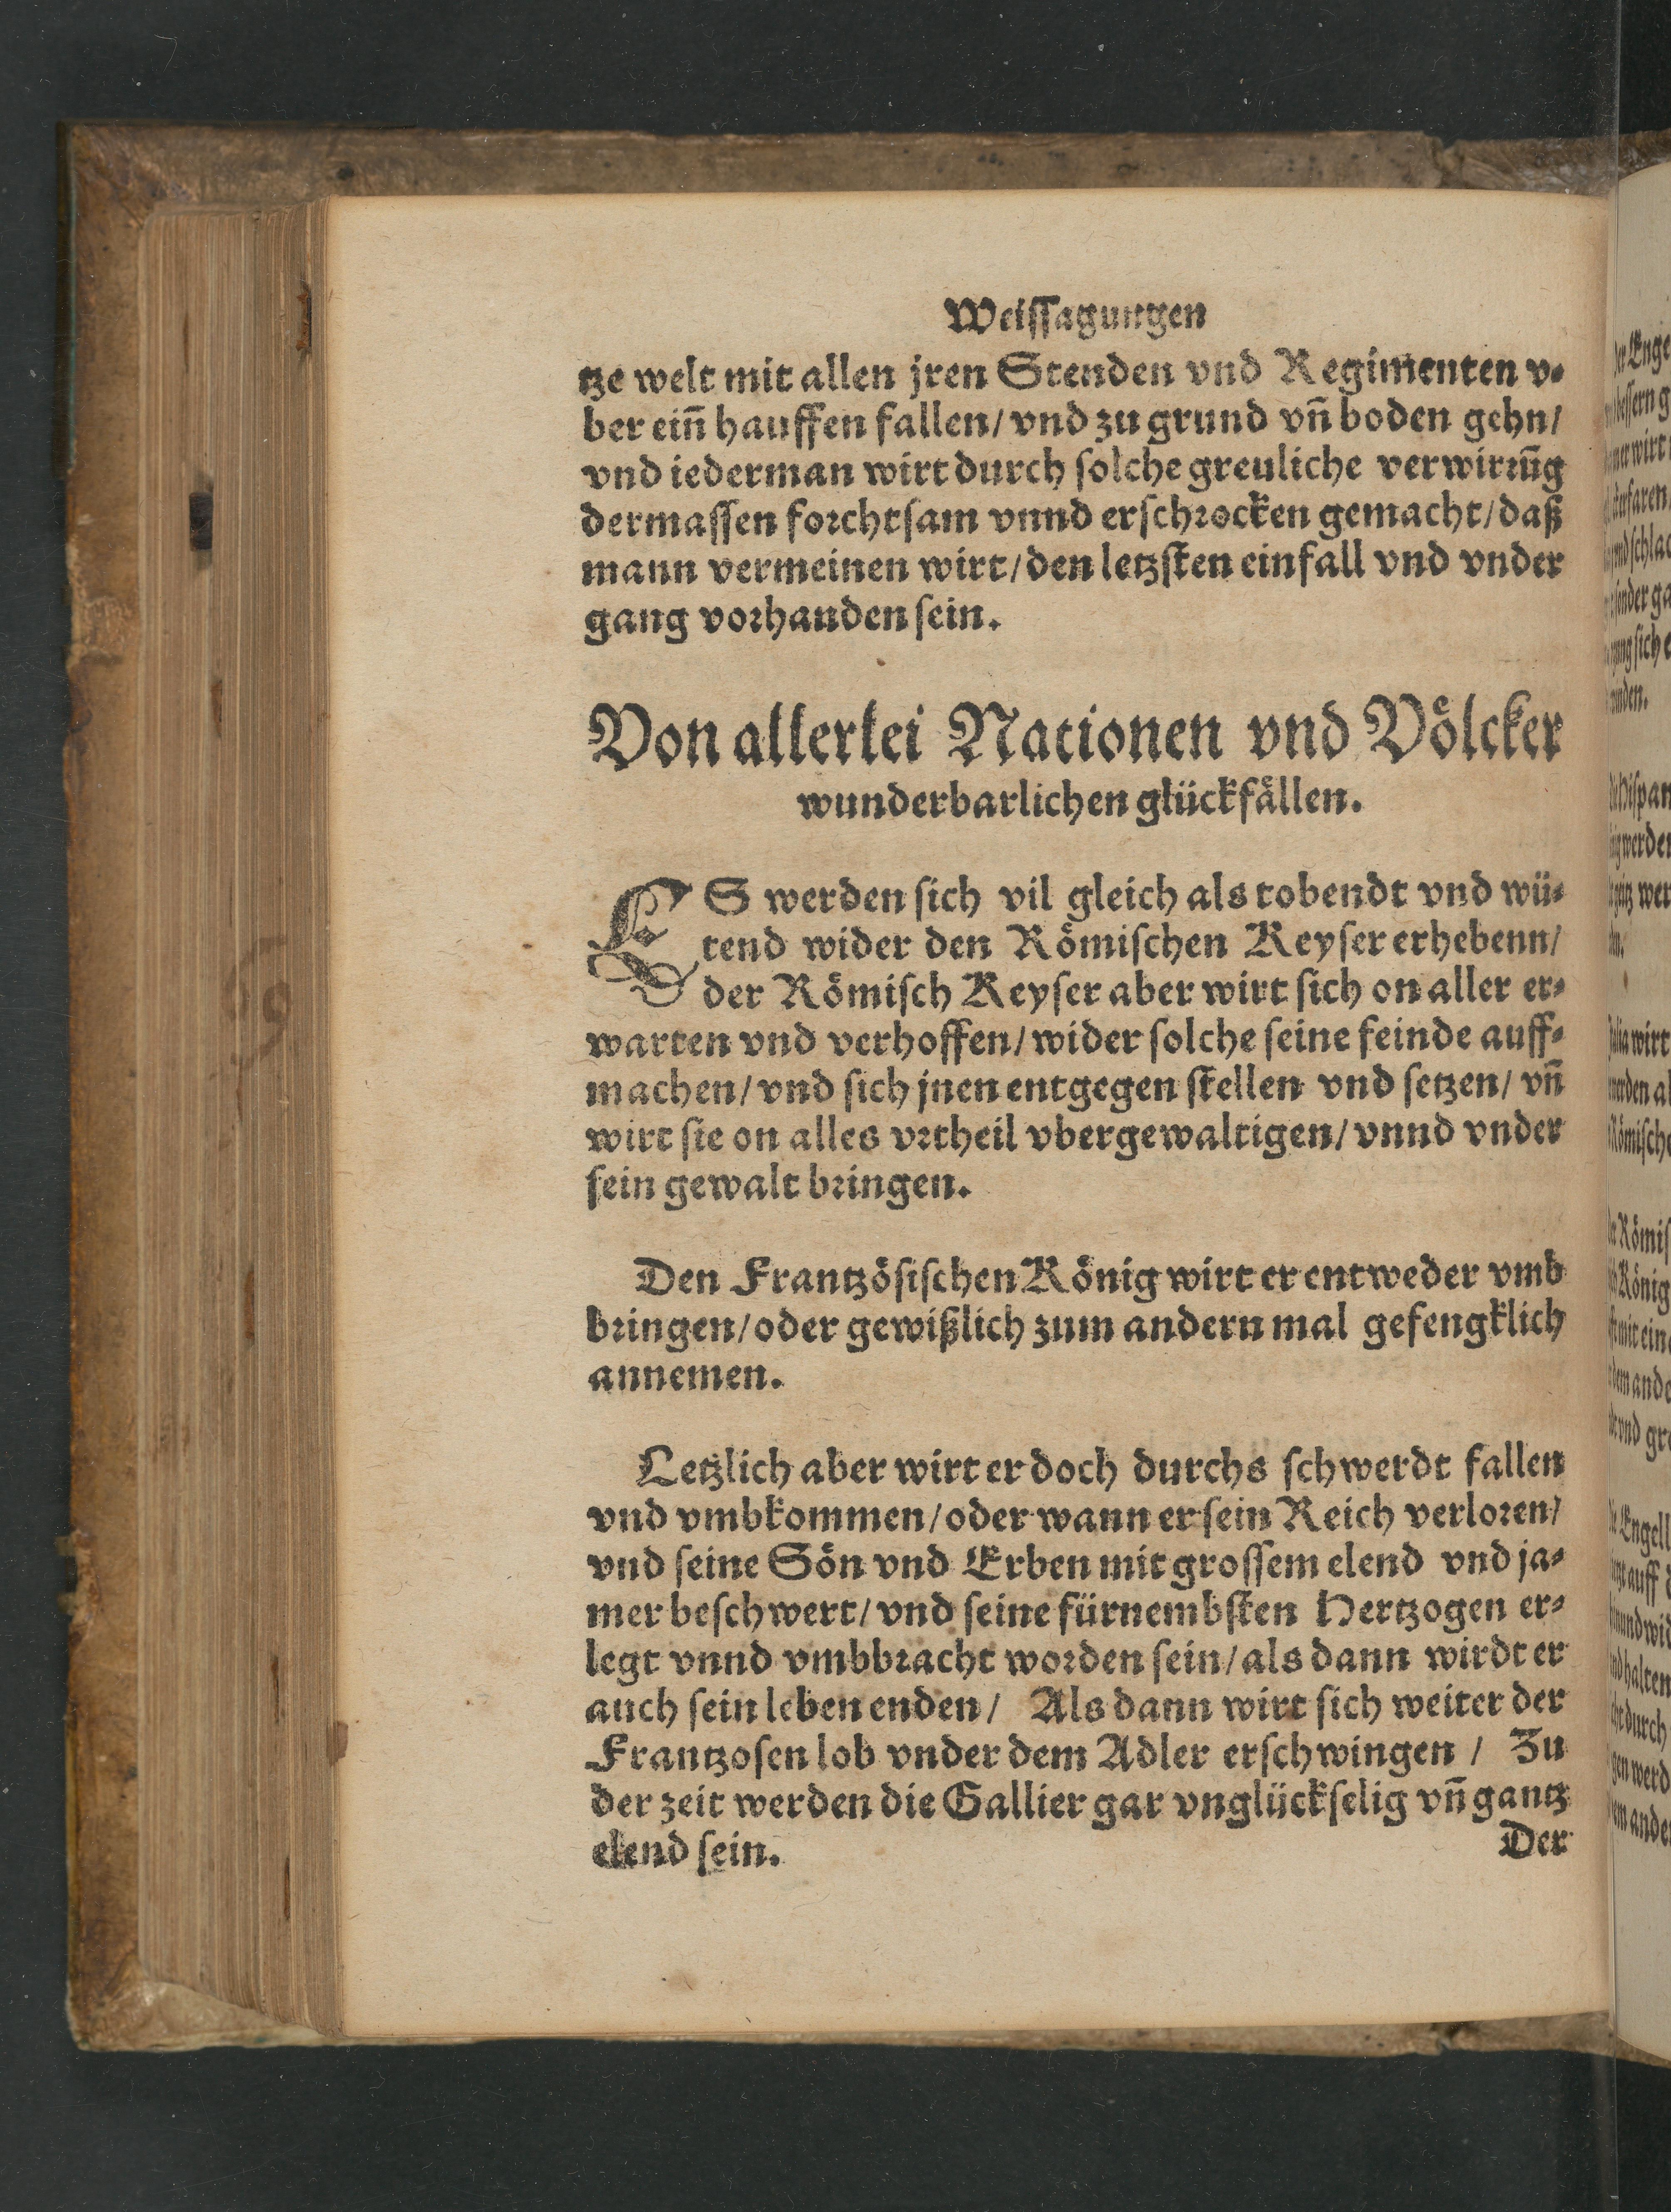 Weissagungen
tze welt mit allen jren Stenden vnd Regimenten v⸗
ber eiñ hauffen fallen/ vnd zu grund vñ boden gehn/
vnd iederman wirt durch solche greuliche verwirrũg
dermassen forchtsam vnnd erschrocken gemacht/ daß
mann vermeinen wirt/ den letzsten einfall vnd vnder
gang vorhanden sein.
Von allerlei Nationen vnd Völcker
wunderbarlichen glückfällen.
ES werden sich vil gleich als tobendt vnd wü⸗
tend wider den Römischen Keyser erhebenn/
der Römisch Keyser aber wirt sich on aller er⸗
warten vnd verhoffen/ wider solche seine feinde auff⸗
machen/ vnd sich jnen entgegen stellen vnd setzen/ vñ
wirt sie on alles vrtheil vbergewaltigen/ vnnd vnder
sein gewalt bringen.
Den Frantzösischen König wirt er entweder vmb
bringen/ oder gewißlich zum andern mal gefengklich
annemen.
Letzlich aber wirt er doch durchs schwerdt fallen
vnd vmbkommen/ oder wann er sein Reich verloren/
vnd seine Sön vnd Erben mit grossem elend vnd ja⸗
mer beschwert/ vnd seine fürnembsten Hertzogen er⸗
legt vnnd vmbbracht worden sein/ als dann wirdt er
auch sein leben enden/ Als dann wirt sich weiter der
Frantzosen lob vnder dem Adler erschwingen / Zu
der zeit werden die Gallier gar vnglückselig vñ gantz
elend sein. Der